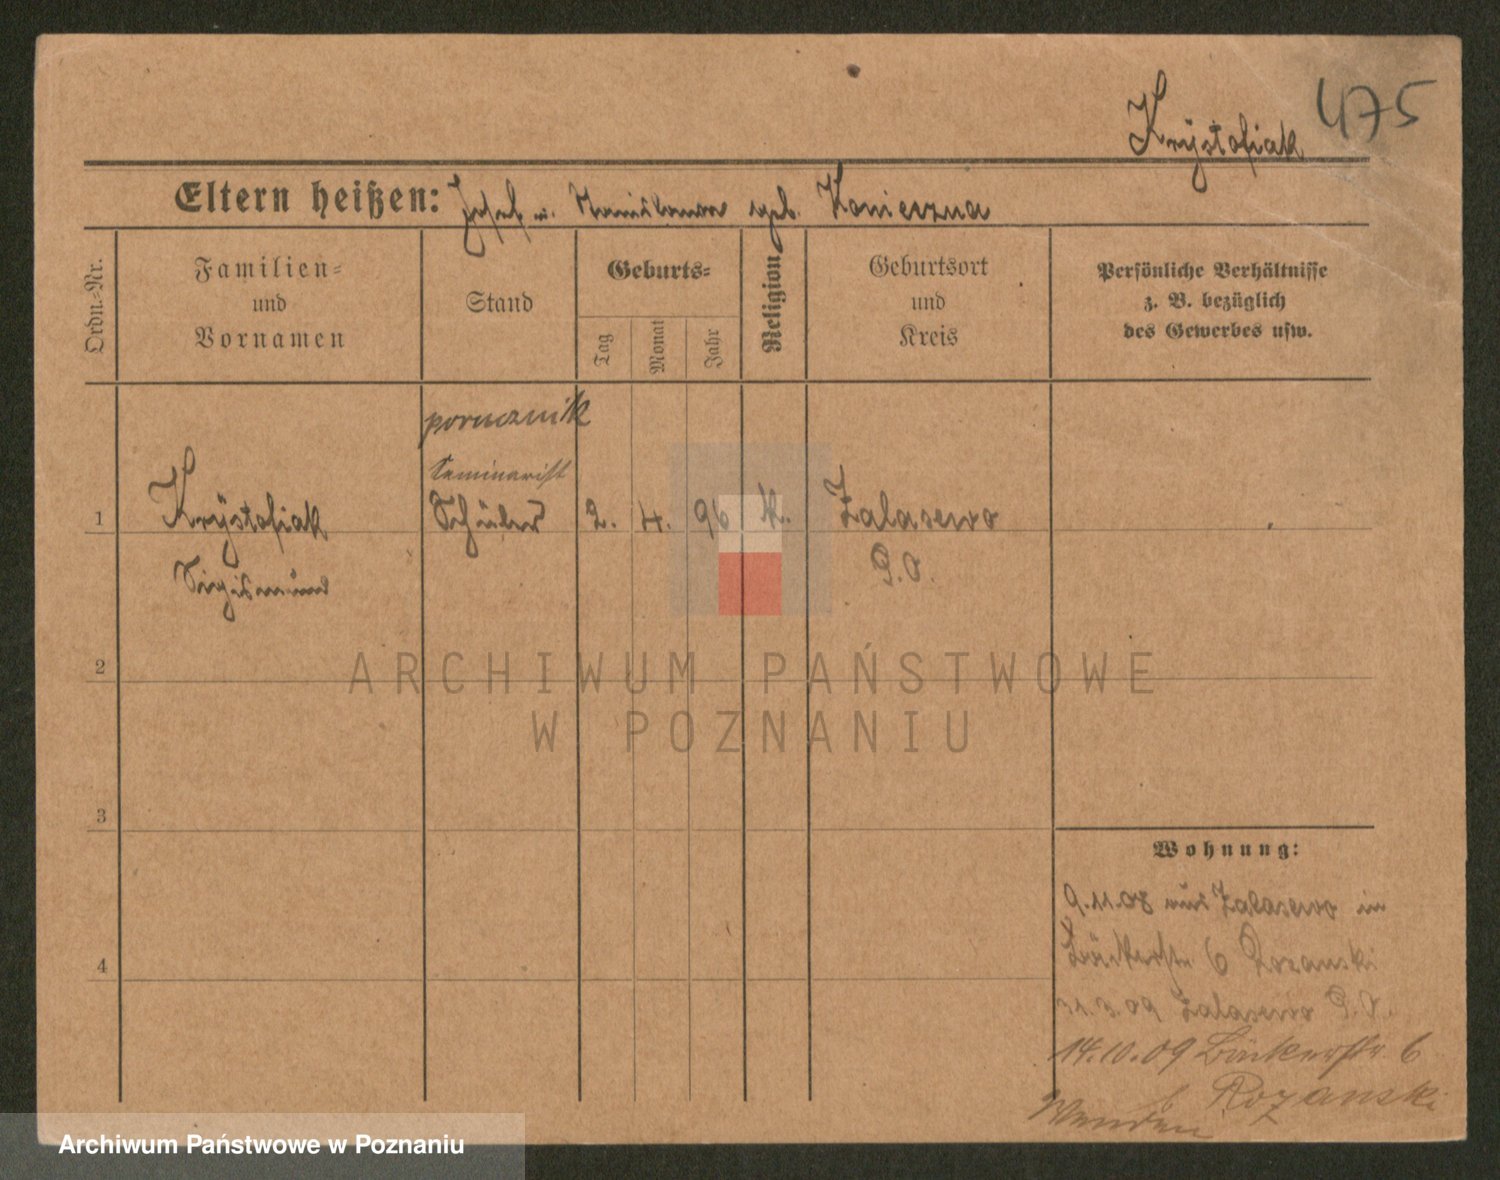 475
Krÿstofiak
Eltern heißen: Josef u. Stanislawa geb. Konieczna
Ordn.-Nr.
Familien-
und
Vornamen
Stand
Geburts-
Tag
Monat
Jahr
Religion
Geburtsort
und
Kreis
Persönliche Verhältnisse
z. B. bezüglich
des Gewerbes usw.
porucznik
Seminarist
1 Krÿstofiak Schüler 2. 4. 96 k. Zalasewo
Sigismund P.O.
2
3
4
Wohnung:
9.11.08 aus Zalasewo in
Bäckerstr. 6 Rozanski
31.3.09 Zalasewo P.O.
14.10.09 Bäckerstr 6
b Rozanski
Wenden
ARCHIWUM PAŃSTWOWE
W POZNANIU
Archiwum Państwowe w Poznaniu